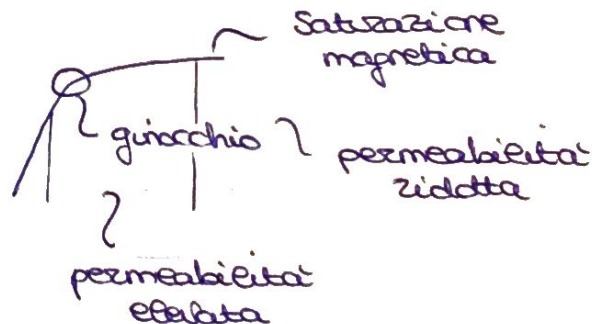 Saturazione
magnetica
ginocchio
permeabilità
ridotta
permeabilità
elevata